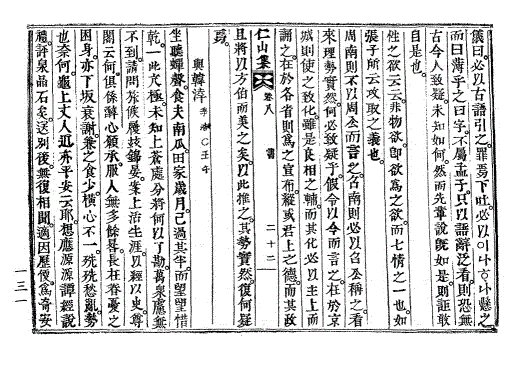 儀曰必以古語引之罪芴下吐必以이나하나懸之
而曰蓋字之曰字不屬孟子只以語辭泛看則恐無
古今人致疑未知如何然而先輩說旣如是則詎敢
自是也
性之欲云云非物欲卽欲爲之欲而七情之一也如
張子所云攻取之義也
周南則不以周公而言之召南則必以召公稱之看
來理勢實然何必致疑乎假令以今而言之在於京
城則使之致化雖是良相之輔而其化必以主上而
誦之在於各省則爲之宣布縱或君上之德而其政
仁山集 卷八 書 二十二
且將以方伯而美之矣以此推之其勢實然復何疑
焉
與韓滓 李洛○壬午
坐聽蟬聲食夫南瓜田家歲月已過其半而望望惜
乾一此亢極未知上蒼處分將何以了勘萬泉慮無
不到請問旅候履玆錫晏案上治生涯以經以史尊
閤云何俱係溸心領承服人無多餘晷長在眷憂之
困身亦下坂衰謝兼之食少橫心不一殘殘愁亂勢
也奈何龜上丈人近亦平安云耶想應源源譚經說
禮評泉品石矣送別後無復相聞適因歷便爲奇安
一三一